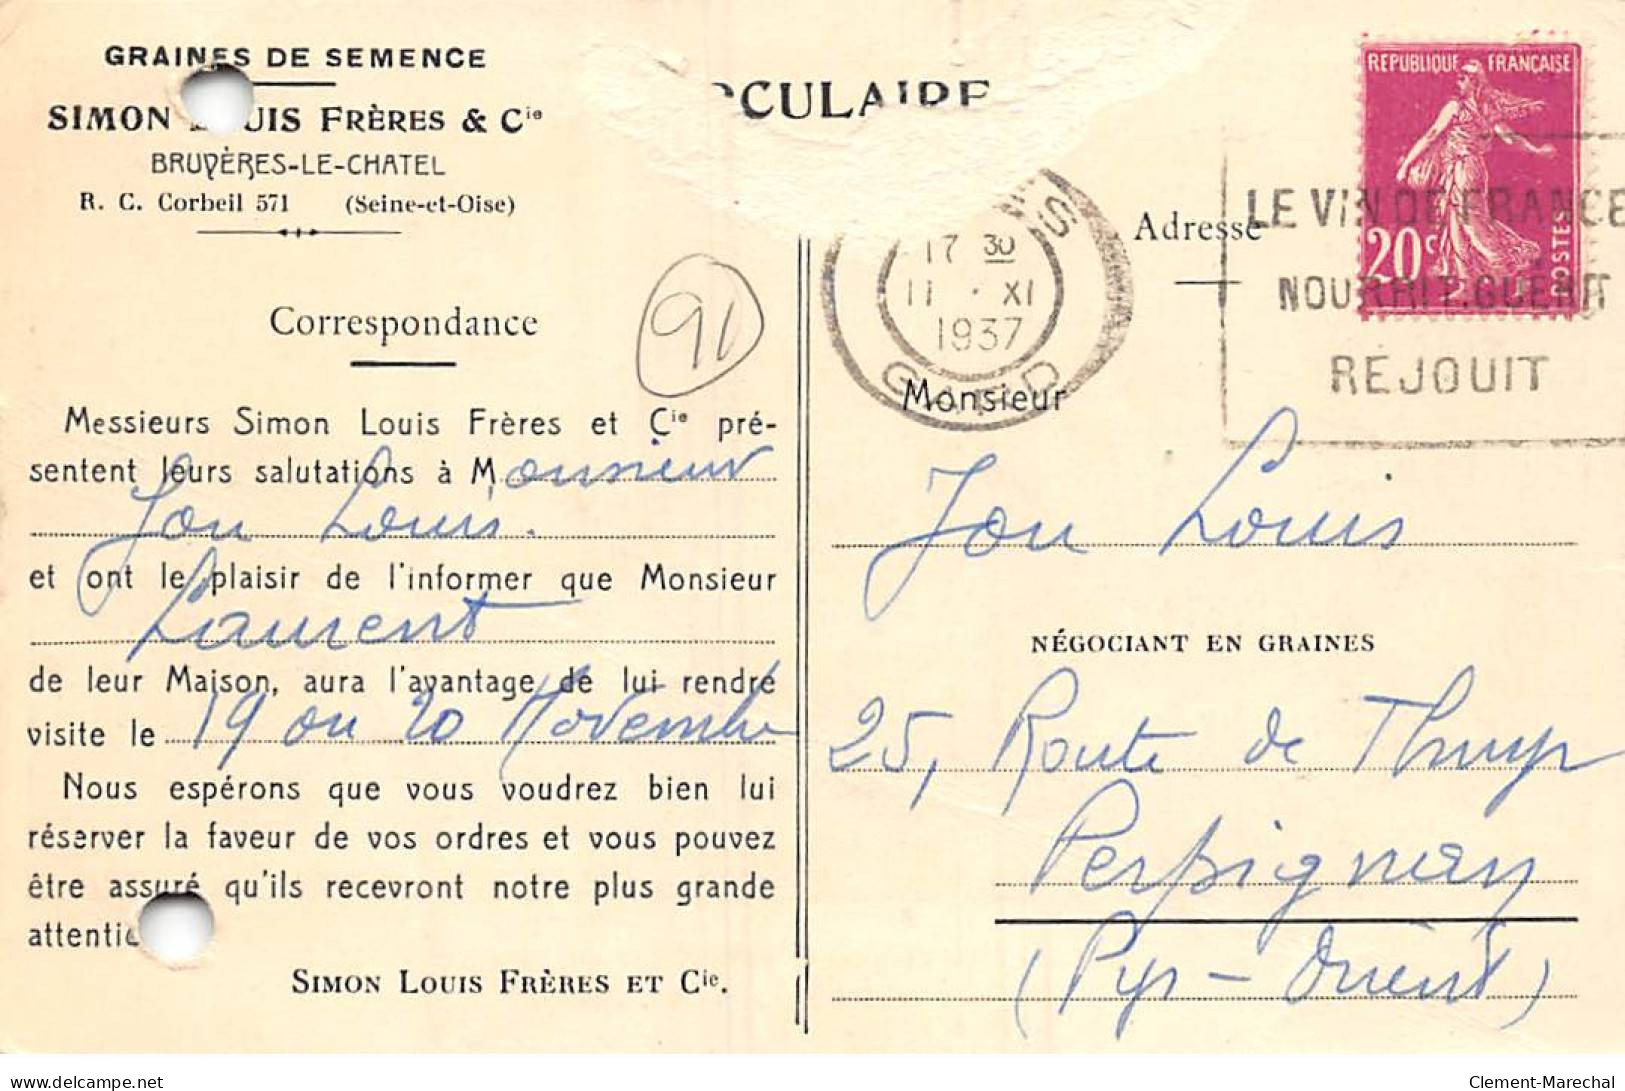 GRAINES DE SEMENCE
SIMON LOUIS FRÈRES & Cie
BRUYÈRES-LE-CHATEL
R. C. Corbeil 571 (Seine-et-Oise)
Correspondance
91
Messieurs Simon Louis Frères et Cie pré-
sentent leurs salutations à Monsieur
Jou Louis.
et ont le plaisir de l'informer que Monsieur
Laurent
de leur Maison, aura l'avantage de lui rendre
visite le 19 ou 20 Novembre
Nous espérons que vous voudrez bien lui
réserver la faveur de vos ordres et vous pouvez
être assuré qu'ils recevront notre plus grande
attentio
SIMON LOUIS FRÈRES ET Cie.
RCULAIRE
REPUBLIQUE FRANÇAISE
20c
POSTES
17 30
11 · XI
1937
GARD
LE VIN DE FRANCE
NOURRIT. GUÉRIT
REJOUIT
Adresse
Monsieur
Jou Louis
NÉGOCIANT EN GRAINES
25, Route de Thuyr
Perpignan
(Pyr-Orient)
delcampe.net
Clement-Marechal